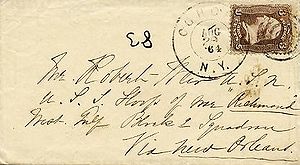 AUG
23
64
N.Y.
83
Mr. Robert Smith S.N.
U. S. S. Sloop of War "Richmond"
West Gulf Block'g Squadron
Via New Orleans.